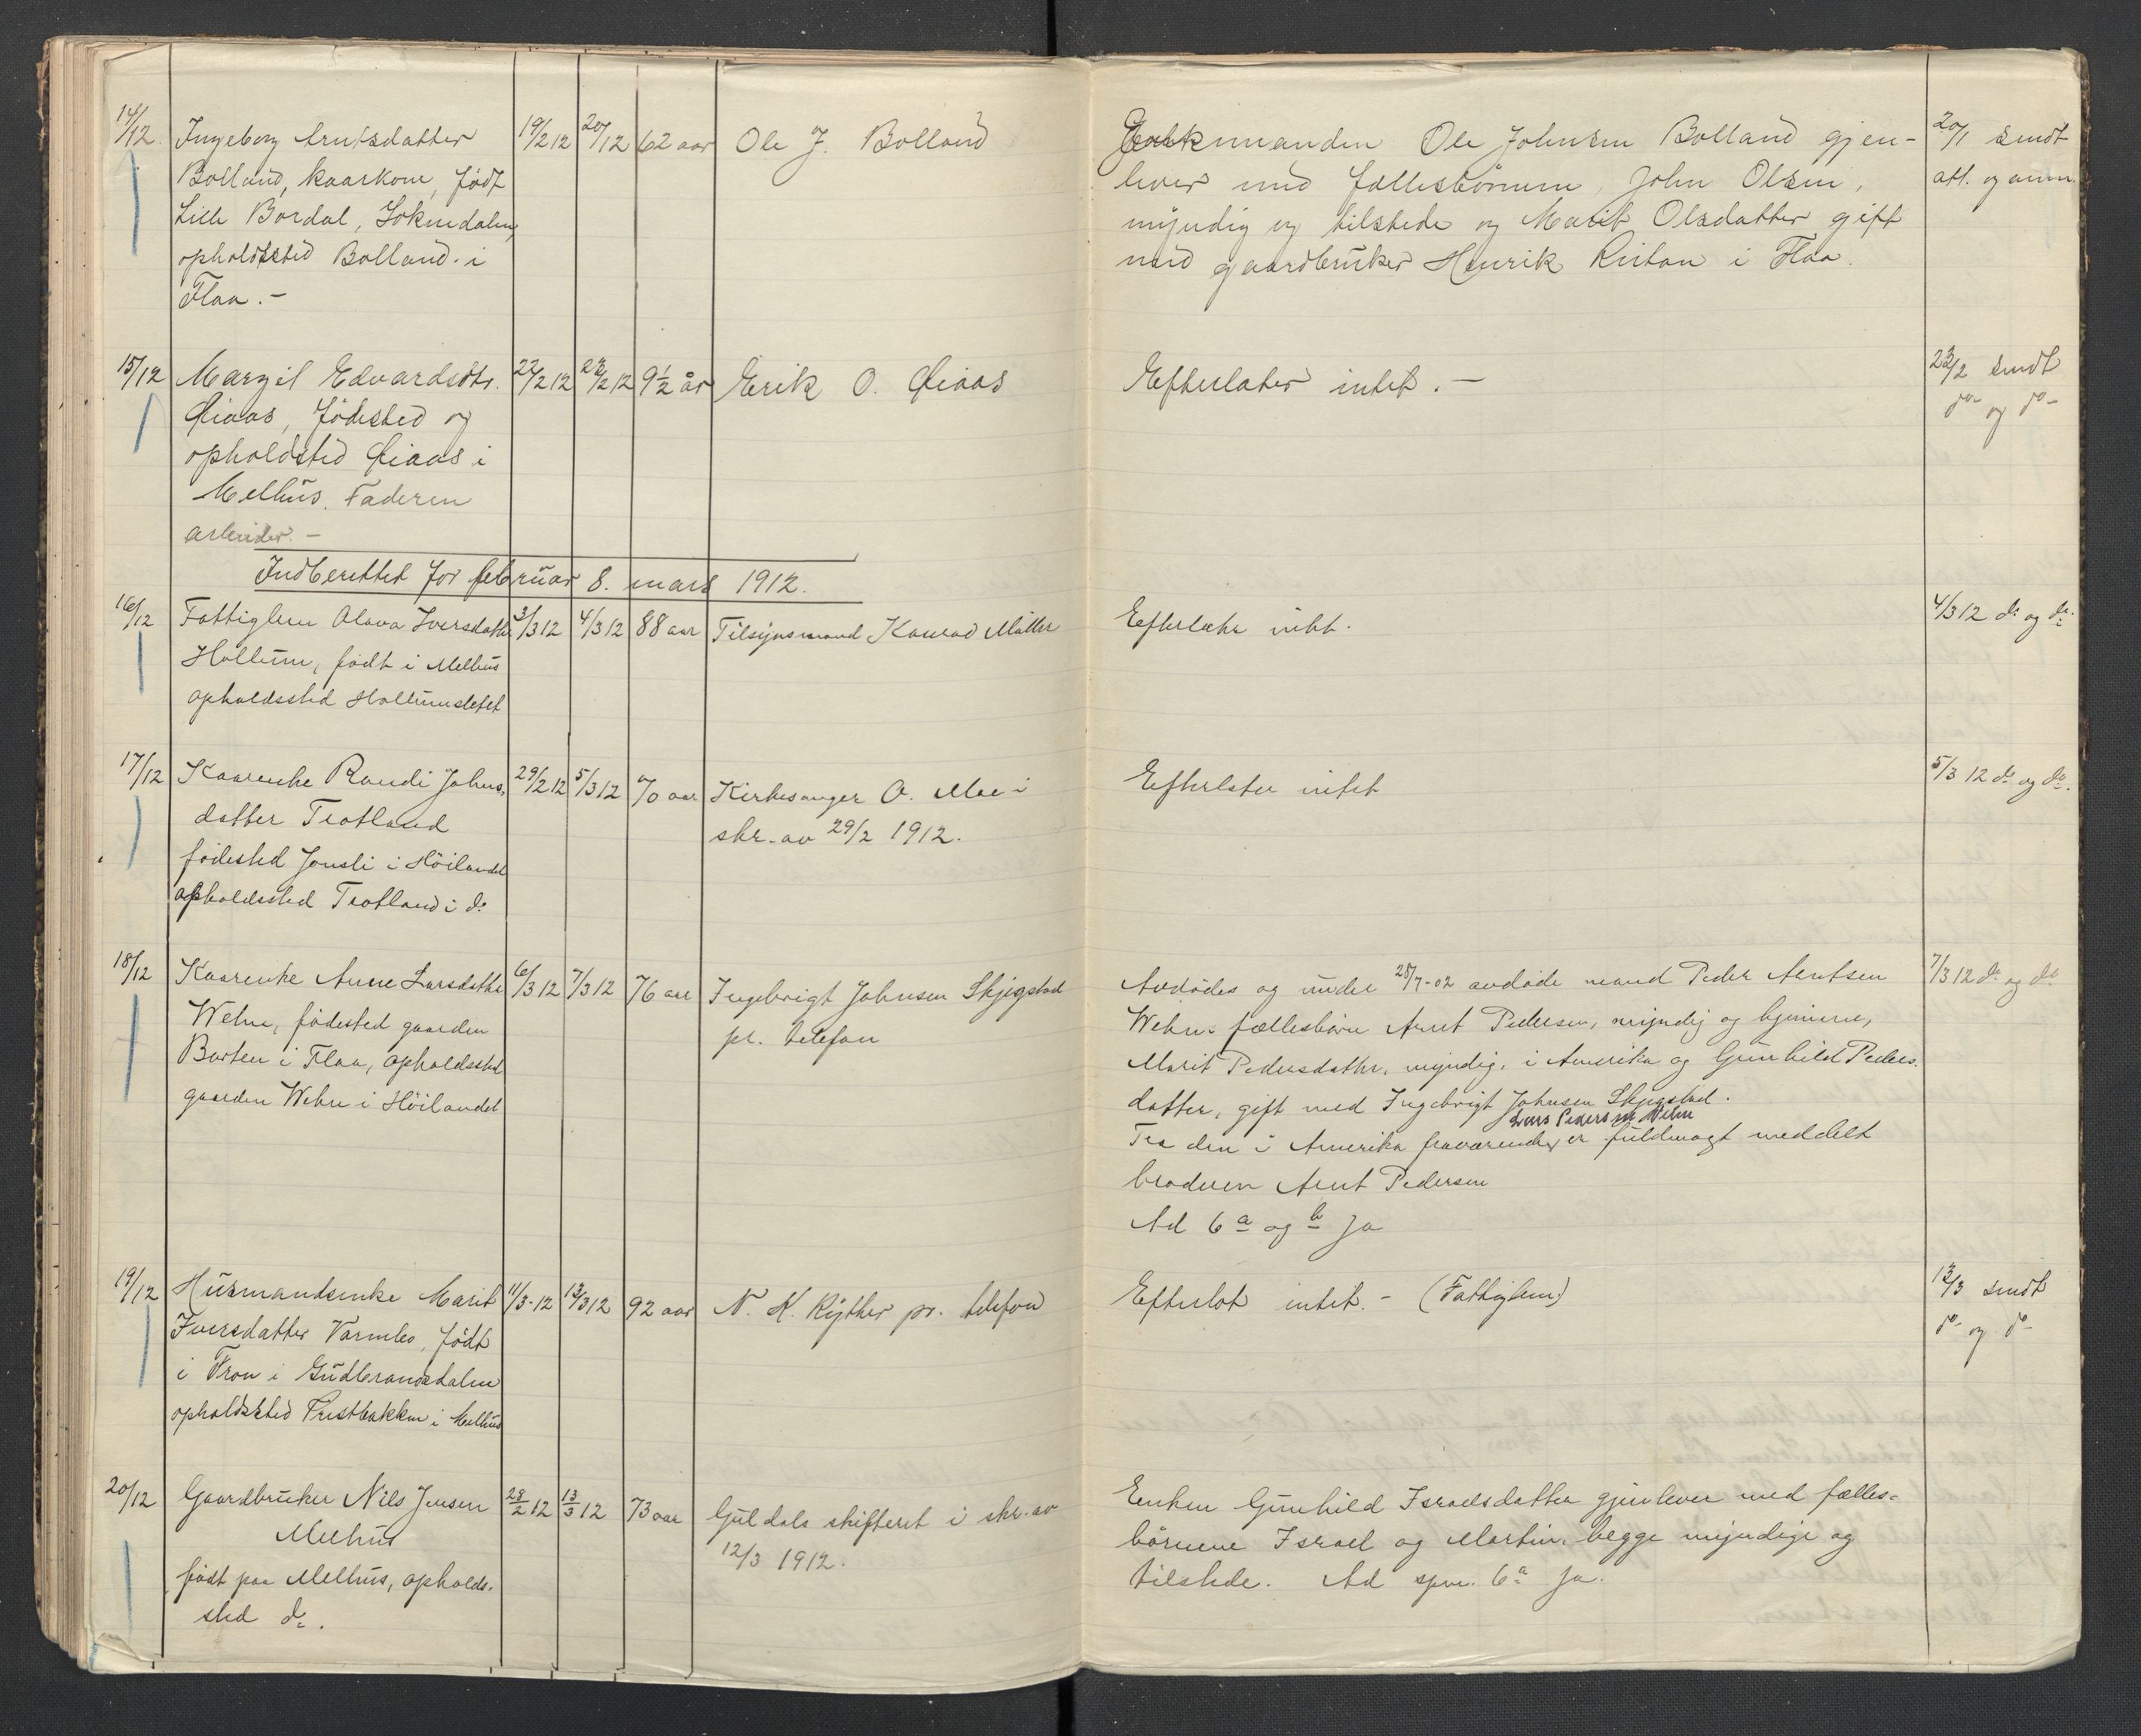 14/12 Ingeborg Arntsdatter 19/2 12 20/12 62 aar Ole J. Bolland
Bolland, kaarkone, födt
Lille Bordal, Soknedalen,
opholdssted Bolland i
Flaa.-
Enkemanden Ole Johnsen Bolland gjen-
lever med fællesbörnene, John Olsen,
myndig og tilstede og Marit Olsdatter gift
med gaardbruker Henrik i Flaa.
20/1 sendt
att. og anm.
15/12 Margit Edvardsdtr. 22/2 12 23/2 12 9½ år Erik O. Öiaas
Öiaas, födested og
opholdsted Öiaas i
Melhus. Faderen
arbeider.-
Efterlater intet.-
23/2 sendt
do og do
Indberettet for februar 8. mars 1912.
16/12 Fattiglem Olava Iversdatter 3/3 12 4/3 12 88 aar Tilsynsmand Konrad Möller
Hollum, födt i Melhus
opholdssted Hollumsletet
Efterlater intet.
4/3 12 do og do
17/12 Kaarenke Randi Johns- 29/2 12 5/3 12 70 aar Kirkesanger O. Moe i
datter Trotland skr. av 29/2 1912.
födested Jonsli i Höilandet
opholdssted Trotland i do
Efterlater intet
5/3 12 do og do.
18/12 Kaarenke Anne Larsdatter 6/3 12 7/3 12 76 aar Ingebrigt Johnsen Skjegstad
Wehn, födested gaarden pr. telefon
Borten i Flaa, opholdssted
gaarden Wehn i Höilandet
Avdödes og under 28/7-02 avdöde mand Peder Arntsen
Wehns fællesbörn Arnt Pedersen, myndig og hjemme,
Marit Pedersdatter, myndig, i Amerika og Gunhild Peders-
datter, gift med Ingebrigt Johnsen Skjegstad.
Lars Pedersen Wehn
Fra den i Amerika fraværende er fuldmagt meddelt
broderen Arnt Pedersen
Ad 6 a og b Ja
7/3 12 do og do
19/12 Husmandsenke Marit 11/3-12 12/3 12 92 aar N. K. Ryther pr. telefon
Iversdatter Varmbo, födt
i Fron i Gudbrandsdalen
opholdssted Prestbakken i Melhus
Efterlot intet.- (Fattiglem)
12/3 sendt
do og do
20/12 Gaardbruker Nils Jensen 28/2 12 13/3 12 73 aar Guldals skifteret i skr. av
Melhus 12/3 1912.
födt paa Melhus, opholds-
sted do.
Enken Gunhild Israelsdatter gjenlever med fælles-
börnene Israel og Martin, begge myndige og
tilstede. Ad spm. 6 a Ja.